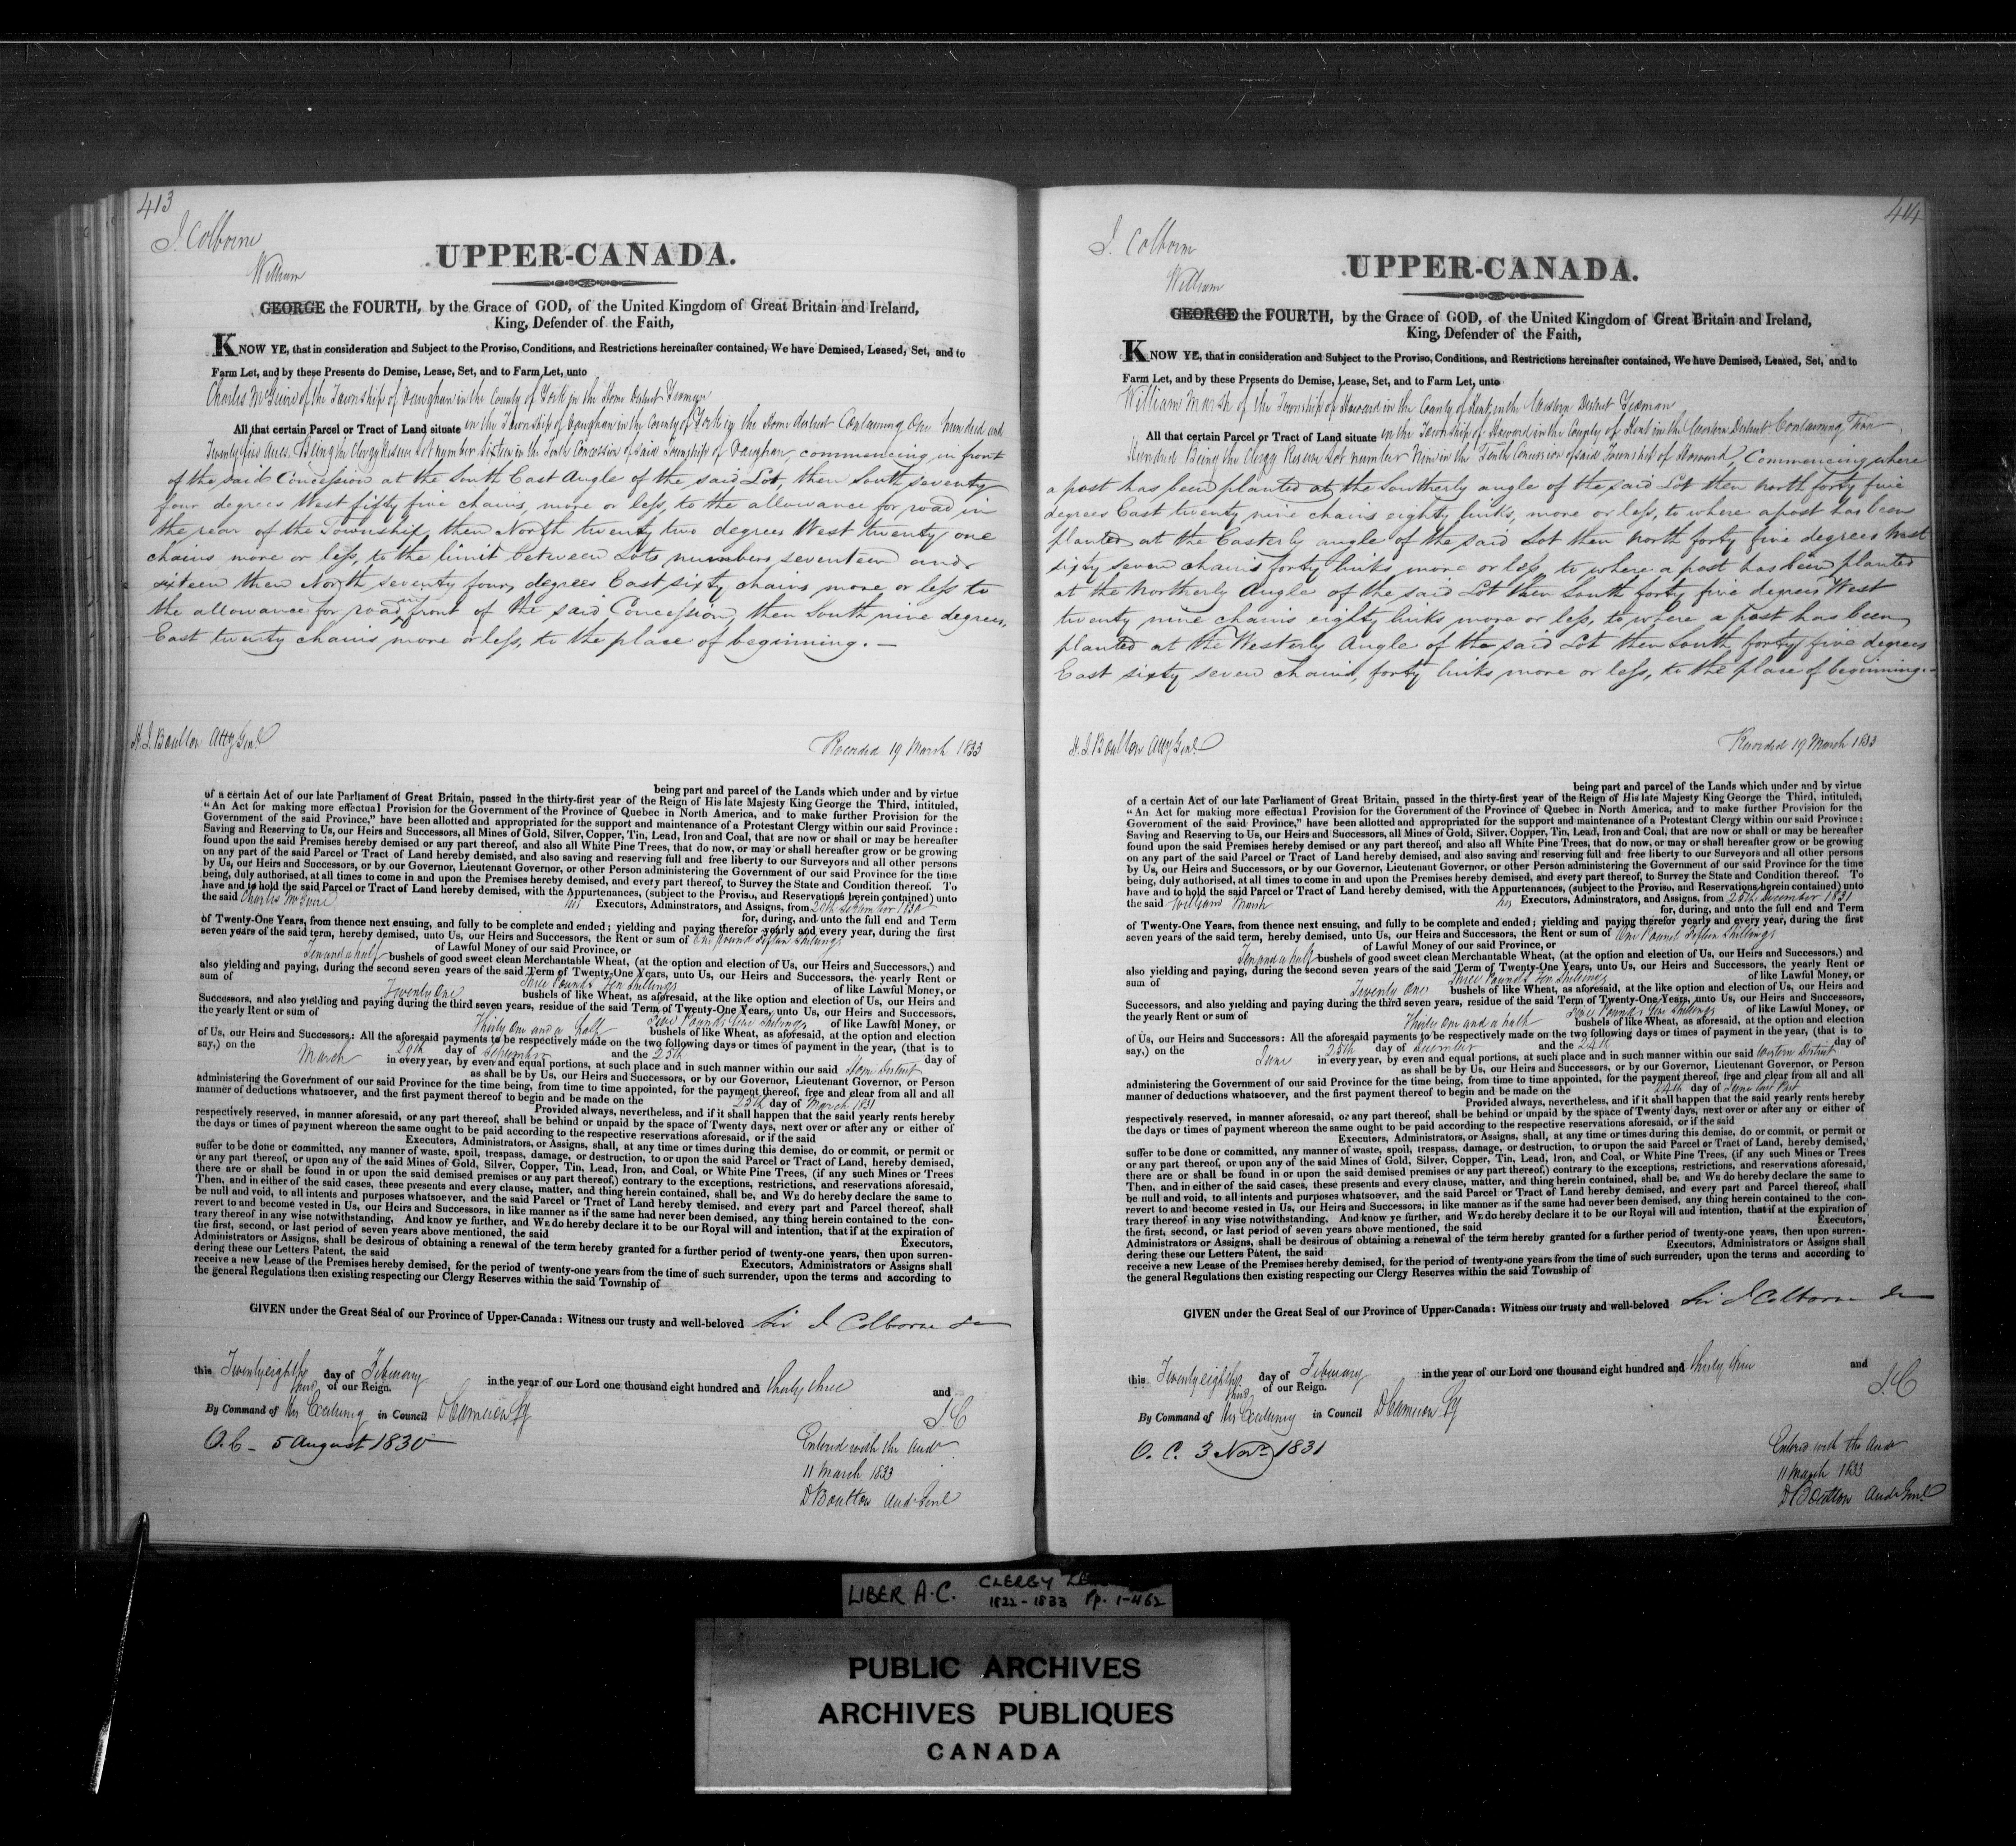 413
J. Colborne
UPPER-CANADA.
William
GEORGE the FOURTH, by the Grace of GOD, of the United Kingdom of Great Britain and Ireland,
King, Defender of the Faith,
KNOW YE, that in consideration and Subject to the Proviso, Conditions, and Restrictions hereinafter contained, We have Demised, Leased, Set, and to
Farm Let, and by these Presents do Demise, Lease, Set, and to Farm Let, unto
Charles McGuire of the Township of Vaughan in the County of York in the Home District Yeoman
All that certain Parcel or Tract of Land situate in the Township of Vaughan in the County of York in the Home District Containing One hundred and
Twenty five Acres, Being the Clergy Reserve Lot number Sixteen in the Tenth Concession of said Township of Vaughan, commencing in front
of the said Concession at the South East Angle of the said Lot, then South seventy
four degrees West fifty five chains, more or less, to the allowance for road in
the rear of the Township, then North twenty two degrees West twenty one
chains more or less, to the limit between Lots numbers seventeen and
sixteen then North seventy four degrees East sixty chains more or less to
the allowance for road in front of the said Concession, then South nine degrees,
East twenty chains more or less, to the place of beginning. –
H. J. Boulton Atty Genl
Recorded 19 March 1833
being part and parcel of the Lands which under and by virtue
of a certain Act of our late Parliament of Great Britain, passed in the thirty-first year of the Reign of His late Majesty King George the Third, intituled,
"An Act for making more effectual Provision for the Government of the Province of Quebec in North America, and to make further Provision for the
Government of the said Province," have been allotted and appropriated for the support and maintenance of a Protestant Clergy within our said Province:
Saving and Reserving to Us, our Heirs and Successors, all Mines of Gold, Silver, Copper, Tin, Lead, Iron and Coal, that are now or shall or may be hereafter
found upon the said Premises hereby demised or any part thereof, and also all White Pine Trees, that do now, or may or shall hereafter grow or be growing
on any part of the said Parcel or Tract of Land hereby demised, and also saving and reserving full and free liberty to our Surveyors and all other persons
by Us, our Heirs and Successors, or by our Governor, Lieutenant Governor, or other Person administering the Government of our said Province for the time
being, duly authorised, at all times to come in and upon the Premises hereby demised, and every part thereof, to Survey the State and Condition thereof. To
have and to hold the said Parcel or Tract of Land hereby demised, with the Appurtenances, (subject to the Proviso, and Reservations herein contained) unto
the said Charles McGuire his Executors, Adminstrators, and Assigns, from 29th September 1830
for, during, and unto the full end and Term
of Twenty-One Years, from thence next ensuing, and fully to be complete and ended; yielding and paying therefor yearly and every year, during the first
seven years of the said term, hereby demised, unto Us, our Heirs and Successors, the Rent or sum of One pound Fifteen Shillings
of Lawful Money of our said Province, or
Ten and a half bushels of good sweet clean Merchantable Wheat, (at the option and election of Us, our Heirs and Successors,) and
also yielding and paying, during the second seven years of the said Term of Twenty-One Years, unto Us, our Heirs and Successors, the yearly Rent or
sum of Three Pounds Ten Shillings of like Lawful Money, or
Twenty One bushels of like Wheat, as aforesaid, at the like option and election of Us, our Heirs and
Successors, and also yielding and paying during the third seven years, residue of the said Term of Twenty-One Years, unto Us, our Heirs and Successors,
the yearly Rent or sum of Five Pounds Five Shillings of like Lawful Money, or
Thirty One and a half bushels of like Wheat, as aforesaid, at the option and election
of Us, our Heirs and Successors: All the aforesaid payments to be respectively made on the two following days or times of payment in the year, (that is to
say,) on the 29th day of September and the 25th day of
March in every year, by even and equal portions, at such place and in such manner within our said Home District
as shall be by Us, our Heirs and Successors, or by our Governor, Lieutenant Governor, or Person
administering the Government of our said Province for the time being, from time to time appointed, for the payment thereof, free and clear from all and all
manner of deductions whatsoever, and the first payment thereof to begin and be made on the 25th day of March 1831
Provided always, nevertheless, and if it shall happen that the said yearly rents hereby
respectively reserved, in manner aforesaid, or any part thereof, shall be behind or unpaid by the space of Twenty days, next over or after any or either of
the days or times of payment whereon the same ought to be paid according to the respective reservations aforesaid, or if the said
Executors, Administrators, or Assigns, shall, at any time or times during this demise, do or commit, or permit or
suffer to be done or committed, any manner of waste, spoil, trespass, damage, or destruction, to or upon the said Parcel or Tract of Land, hereby demised,
or any part thereof, or upon any of the said Mines of Gold, Silver, Copper, Tin, Lead, Iron, and Coal, or White Pine Trees, (if any such Mines or Trees
there are or shall be found in or upon the said demised premises or any part thereof,) contrary to the exceptions, restrictions, and reservations aforesaid,
Then, and in either of the said cases, these presents and every clause, matter, and thing herein contained, shall be, and WE do hereby declare the same to
be null and void, to all intents and purposes whatsoever, and the said Parcel or Tract of Land hereby demised, and every part and Parcel thereof, shall
revert to and become vested in Us, our Heirs and Successors, in like manner as if the same had never been demised, any thing herein contained to the con-
trary thereof in any wise notwithstanding, And know ye further, and WE do hereby declare it to be our Royal will and intention, that if at the expiration of
the first, second, or last period of seven years above mentioned, the said Executors,
Administrators or Assigns, shall be desirous of obtaining a renewal of the term hereby granted for a further period of twenty-one years, then upon surren-
dering these our Letters Patent, the said Executors, Administrators or Assigns shall
receive a new Lease of the Premises hereby demised, for the period of twenty-one years from the time of such surrender, upon the terms and according to
the general Regulations then existing respecting our Clergy Reserves within the said Township of
GIVEN under the Great Seal of our Province of Upper-Canada: Witness our trusty and well-beloved Sir J Colborne &c
this Twenty eighth day of February in the year of our Lord one thousand eight hundred and thirty three and
third of our Reign.
By Command of His Excellency in Council D Cameron Sy
J.C
O.C – 5 August 1830
Entered with the Audr
11 March 1833
D Boulton Audr Genl
414
J. Colborne
UPPER-CANADA.
William
GEORGE the FOURTH, by the Grace of GOD, of the United Kingdom of Great Britain and Ireland,
King, Defender of the Faith,
KNOW YE, that in consideration and Subject to the Proviso, Conditions, and Restrictions hereinafter contained, We have Demised, Leased, Set, and to
Farm Let, and by these Presents do Demise, Lease, Set, and to Farm Let, unto
William Marsh of the Township of Howard in the County of Kent, in the Western District Yeoman
All that certain Parcel or Tract of Land situate in the Township of Howard in the County of Kent in the Western District Containing Two
Hundred Being the Clergy Reserve Lot number Nine in the Tenth Concession of said Township of Howard, Commencing where
a post has been planted at the Southerly angle of the said Lot then North forty five
degrees East twenty nine chains eighty links, more or less, to where a post has been
planted at the Easterly angle of the said Lot then North forty five degrees West
sixty seven chains forty links more or less, to where a post has been planted
at the Northerly Angle of the said Lot then South forty five degrees West
twenty nine chains eighty links, more or less, to where a post has been
planted at the Westerly Angle of the said Lot then South forty five degrees
East sixty seven chains, forty links more or less, to the place of beginning. –
H. J Boulton Atty Genl
Recorded 19 March 1833
being part and parcel of the Lands which under and by virtue
of a certain Act of our late Parliament of Great Britain, passed in the thirty-first year of the Reign of His late Majesty King George the Third, intituled,
"An Act for making more effectual Provision for the Government of the Province of Quebec in North America, and to make further Provision for the
Government of the said Province," have been allotted and appropriated for the support and maintenance of a Protestant Clergy within our said Province:
Saving and Reserving to Us, our Heirs and Successors, all Mines of Gold, Silver, Copper, Tin, Lead, Iron and Coal, that are now or shall or may be hereafter
found upon the said Premises hereby demised or any part thereof, and also all White Pine Trees, that do now, or may or shall hereafter grow or be growing
on any part of the said Parcel or Tract of Land hereby demised, and also saving and reserving full and free liberty to our Surveyors and all other persons
by Us, our Heirs and Successors, or by our Governor, Lieutenant Governor, or other Person administering the Government of our said Province for the time
being, duly authorised, at all times to come in and upon the Premises hereby demised, and every part thereof, to Survey the State and Condition thereof. To
have and to hold the said Parcel or Tract of Land hereby demised, with the Appurtenances, (subject to the Proviso, and Reservations herein contained) unto
the said William Marsh his Executors, Adminstrators, and Assigns, from 25th December 1831
for, during, and unto the full end and Term
of Twenty-One Years, from thence next ensuing, and fully to be complete and ended; yielding and paying therefor yearly and every year, during the first
seven years of the said term, hereby demised, unto Us, our Heirs and Successors, the Rent or sum of One Pound Fifteen Shillings
of Lawful Money of our said Province, or
Ten and a half bushels of good sweet clean Merchantable Wheat, (at the option and election of Us, our Heirs and Successors,) and
also yielding and paying, during the second seven years of the said Term of Twenty-One Years, unto Us, our Heirs and Successors, the yearly Rent or
sum of Three Pounds Ten Shillings of like Lawful Money, or
Twenty One bushels of like Wheat, as aforesaid, at the like option and election of Us, our Heirs and
Successors, and also yielding and paying during the third seven years, residue of the said Term of Twenty-One Years, unto Us, our Heirs and Successors,
the yearly Rent or sum of Five Pounds Five Shillings of like Lawful Money, or
Thirty One and a half bushels of like Wheat, as aforesaid, at the option and election
of Us, our Heirs and Successors: All the aforesaid payments to be respectively made on the two following days or times of payment in the year, (that is to
say,) on the 25th day of December and the 24th day of
June in every year, by even and equal portions, at such place and in such manner within our said Western District
as shall be by Us, our Heirs and Successors, or by our Governor, Lieutenant Governor, or Person
administering the Government of our said Province for the time being, from time to time appointed, for the payment thereof, free and clear from all and all
manner of deductions whatsoever, and the first payment thereof to begin and be made on the 24th day of June last Past
Provided always, nevertheless, and if it shall happen that the said yearly rents hereby
respectively reserved, in manner aforesaid, or any part thereof, shall be behind or unpaid by the space of Twenty days, next over or after any or either of
the days or times of payment whereon the same ought to be paid according to the respective reservations aforesaid, or if the said
Executors, Administrators, or Assigns, shall, at any time or times during this demise, do or commit, or permit or
suffer to be done or committed, any manner of waste, spoil, trespass, damage, or destruction, to or upon the said Parcel or Tract of Land, hereby demised,
or any part thereof, or upon any of the said Mines of Gold, Silver, Copper, Tin, Lead, Iron, and Coal, or White Pine Trees, (if any such Mines or Trees
there are or shall be found in or upon the said demised premises or any part thereof,) contrary to the exceptions, restrictions, and reservations aforesaid,
Then, and in either of the said cases, these presents and every clause, matter, and thing herein contained, shall be, and WE do hereby declare the same to
be null and void, to all intents and purposes whatsoever, and the said Parcel or Tract of Land hereby demised, and every part and Parcel thereof, shall
revert to and become vested in Us, our Heirs and Successors, in like manner as if the same had never been demised, any thing herein contained to the con-
trary thereof in any wise notwithstanding, And know ye further, and WE do hereby declare it to be our Royal will and intention, that if at the expiration of
the first, second, or last period of seven years above mentioned, the said Executors,
Administrators or Assigns, shall be desirous of obtaining a renewal of the term hereby granted for a further period of twenty-one years, then upon surren-
dering these our Letters Patent, the said Executors, Administrators or Assigns shall
receive a new Lease of the Premises hereby demised, for the period of twenty-one years from the time of such surrender, upon the terms and according to
the general Regulations then existing respecting our Clergy Reserves within the said Township of
GIVEN under the Great Seal of our Province of Upper-Canada: Witness our trusty and well-beloved Sir J Colborne &c
this Twenty eighth day of February in the year of our Lord one thousand eight hundred and thirty three and
third of our Reign.
By Command of His Excellency in Council D Cameron Sy
J.C
O. C. 3 Novr 1831
Entered with the Audr
11 March 1833
D Boulton Audr Genl
LIBER A.C. CLERGY
1822-1833 Pp. 1-462
PUBLIC ARCHIVES
ARCHIVES PUBLIQUES
CANADA